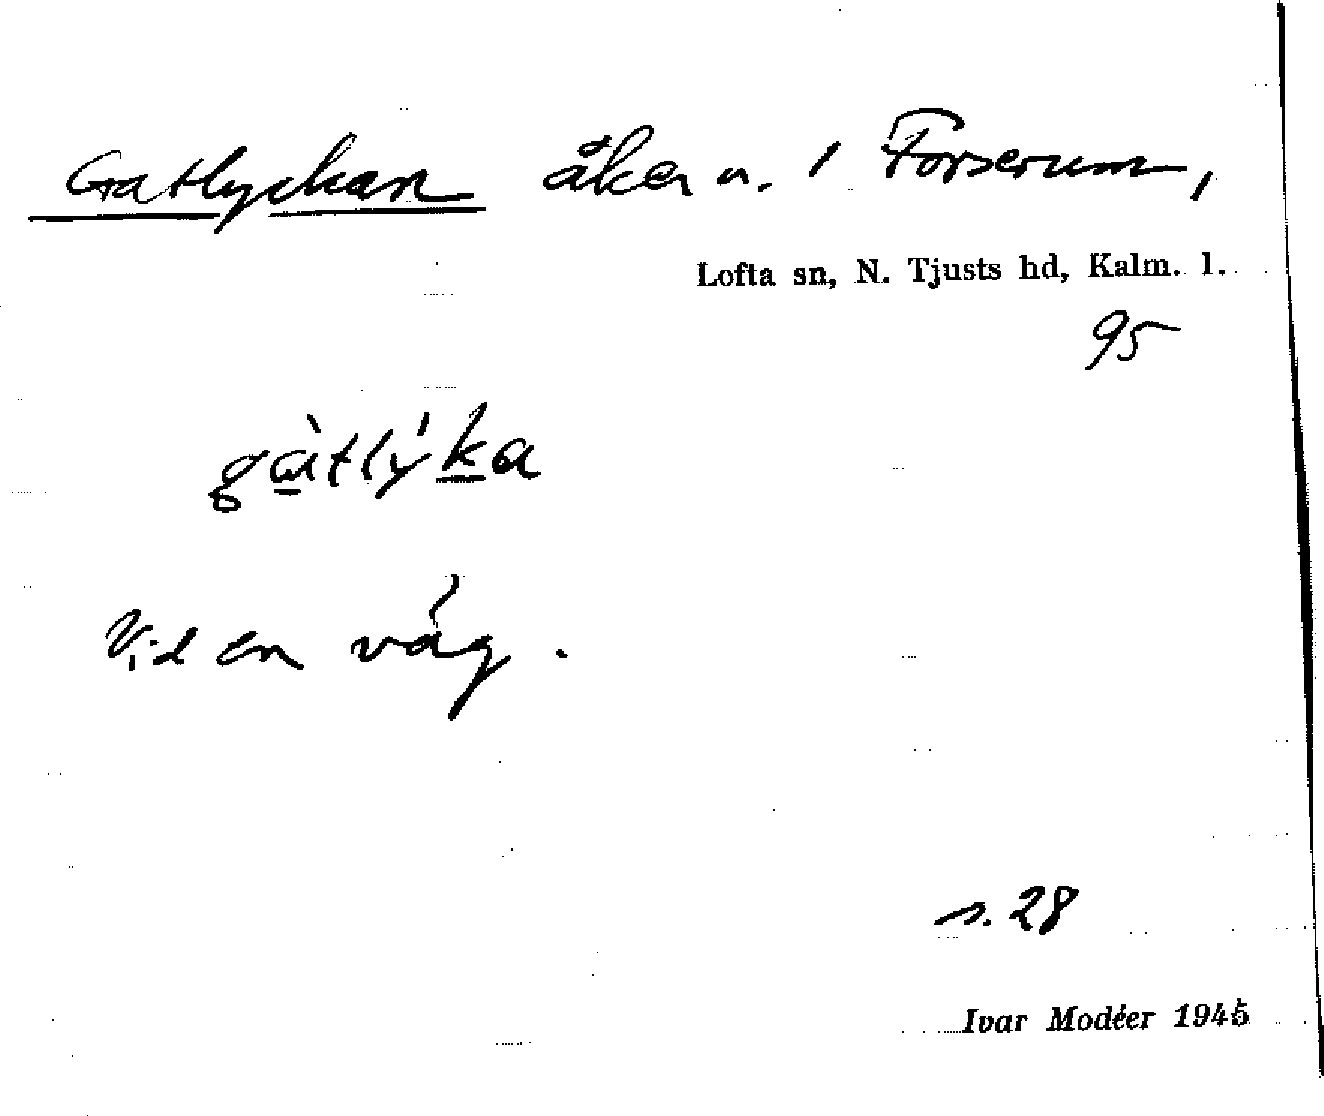 Gatlyckan åker n. i Forserum,
Lofta sn, N. Tjusts hd, Kalm. l.
95
gàtlýka
Vid en väg.
s. 28
Ivar Modéer 1945